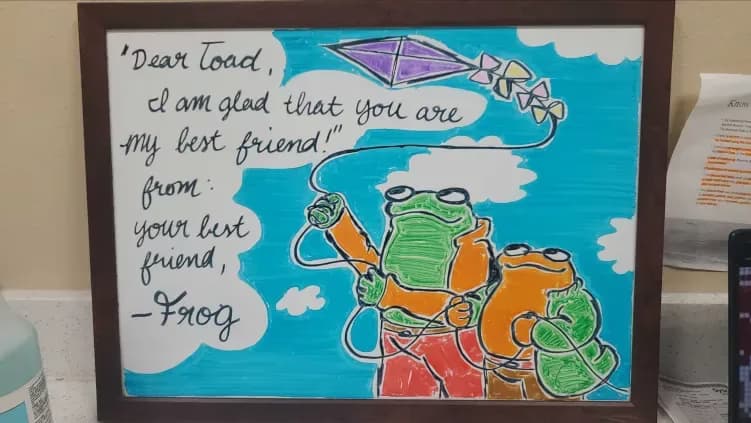 "Dear Toad,
I am glad that you are
my best friend!"
from:
your best
friend,
-Frog